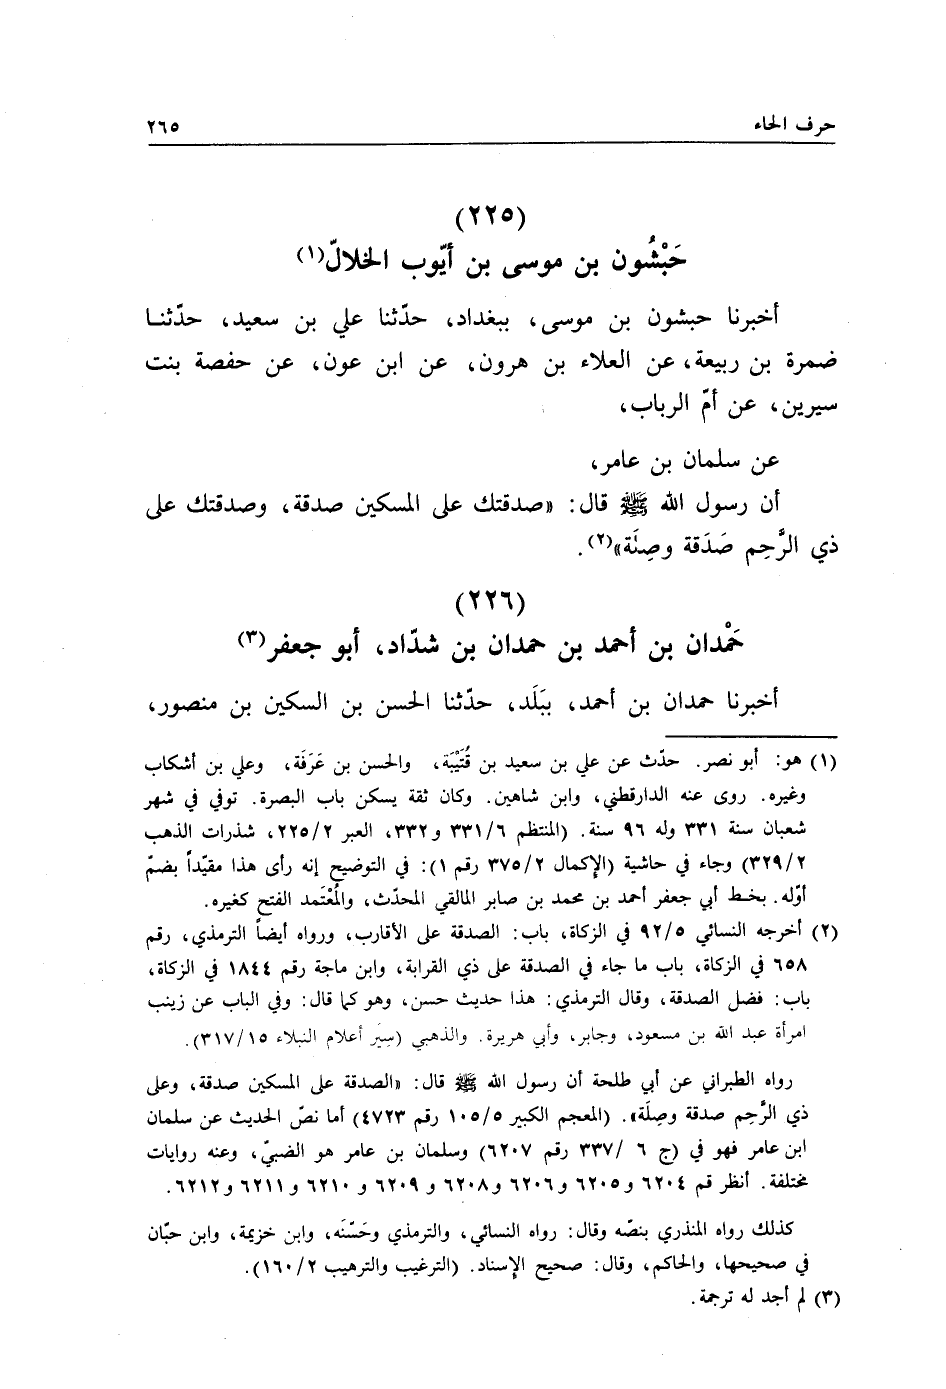 حرف الحاء ٢٦٥
(٢٢٥)
حَبْشُون بن موسى بن أيّوب الخلالّ(١)
أخبرنا حبشون بن موسى، ببغداد، حدّثنا علي بن سعيد، حدّثنا
ضمرة بن ربيعة، عن العلاء بن هرون، عن ابن عون، عن حفصة بنت
سيرين، عن أمّ الرباب،
عن سلمان بن عامر،
أن رسول الله ﷺ قال: «صدقتك على المسكين صدقة، وصدقتك على
ذي الرَّحِم صَدَقة وصِلَة»(٢).
(٢٢٦)
حَمْدان بن أحمد بن حمدان بن شدّاد، أبو جعفر(٣)
أخبرنا حمدان بن أحمد، ببَلَد، حدّثنا الحسن بن السكين بن منصور،
(١) هو: أبو نصر. حدّث عن علي بن سعيد بن قُتَيْبَة، والحسن بن عَرَفَة، وعلي بن أشكاب
وغيره. روى عنه الدارقطني، وابن شاهين. وكان ثقة يسكن باب البصرة. توفي في شهر
شعبان سنة ٣٣١ وله ٩٦ سنة. (المنتظم ٣٣١/٦ و٣٣٢، العبر ٢٢٥/٢، شذرات الذهب
٣٢٩/٢) وجاء في حاشية (الإكمال ٣٧٥/٢ رقم ١): في التوضيح إنه رأى هذا مقيّداً بضمّ
أوّله. بخط أبي جعفر أحمد بن محمد بن صابر المالقي المحدّث، والمُعْتَمد الفتح كغيره.
(٢) أخرجه النسائي ٩٢/٥ في الزكاة، باب: الصدقة على الأقارب، ورواه أيضاً الترمذي، رقم
٦٥٨ في الزكاة، باب ما جاء في الصدقة على ذي القرابة، وابن ماجة رقم ١٨٤٤ في الزكاة،
باب: فضل الصدقة، وقال الترمذي: هذا حديث حسن، وهو كما قال: وفي الباب عن زينب
امرأة عبد الله بن مسعود، وجابر، وأبي هريرة. والذهبي (سِيَر أعلام النبلاء ٣١٧/١٥).
رواه الطبراني عن أبي طلحة أن رسول الله ﷺ قال: «الصدقة على المسكين صدقة، وعلى
ذي الرَّحِم صدقة وصِلَة». (المعجم الكبير ١٠٥/٥ رقم ٤٧٢٣) أما نصّ الحديث عن سلمان
ابن عامر فهو في (ج ٦ /٣٣٧ رقم ٦٢٠٧) وسلمان بن عامر هو الضبيّ، وعنه روايات
مختلفة. أنظر قم ٦٢٠٤ و٦٢٠٥ و٦٢٠٦ و٦٢٠٨ و ٦٢٠٩ و ٦٢١٠ و٦٢١١ و٦٢١٢.
كذلك رواه المنذري بنصّه وقال: رواه النسائي، والترمذي وحَسّنَه، وابن خزيمة، وابن حبّان
في صحيحها، والحاكم، وقال: صحيح الإسناد. (الترغيب والترهيب ١٦٠/٢).
(٣) لم أجد له ترجمة.